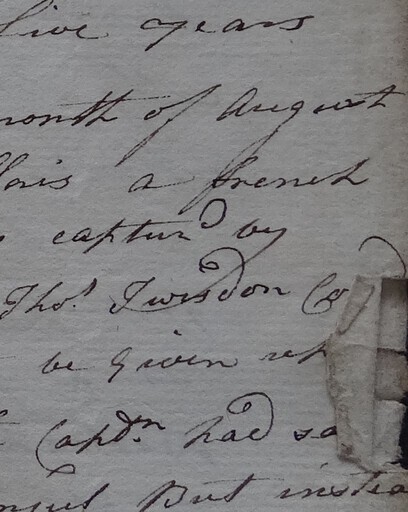 five years
month of August
a french
captur'd by
Thos. Twisdon
be given up
Capt.n had
But instea